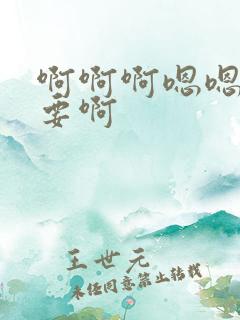 啊啊啊嗯嗯
要啊
王世元
未经同意禁止转载